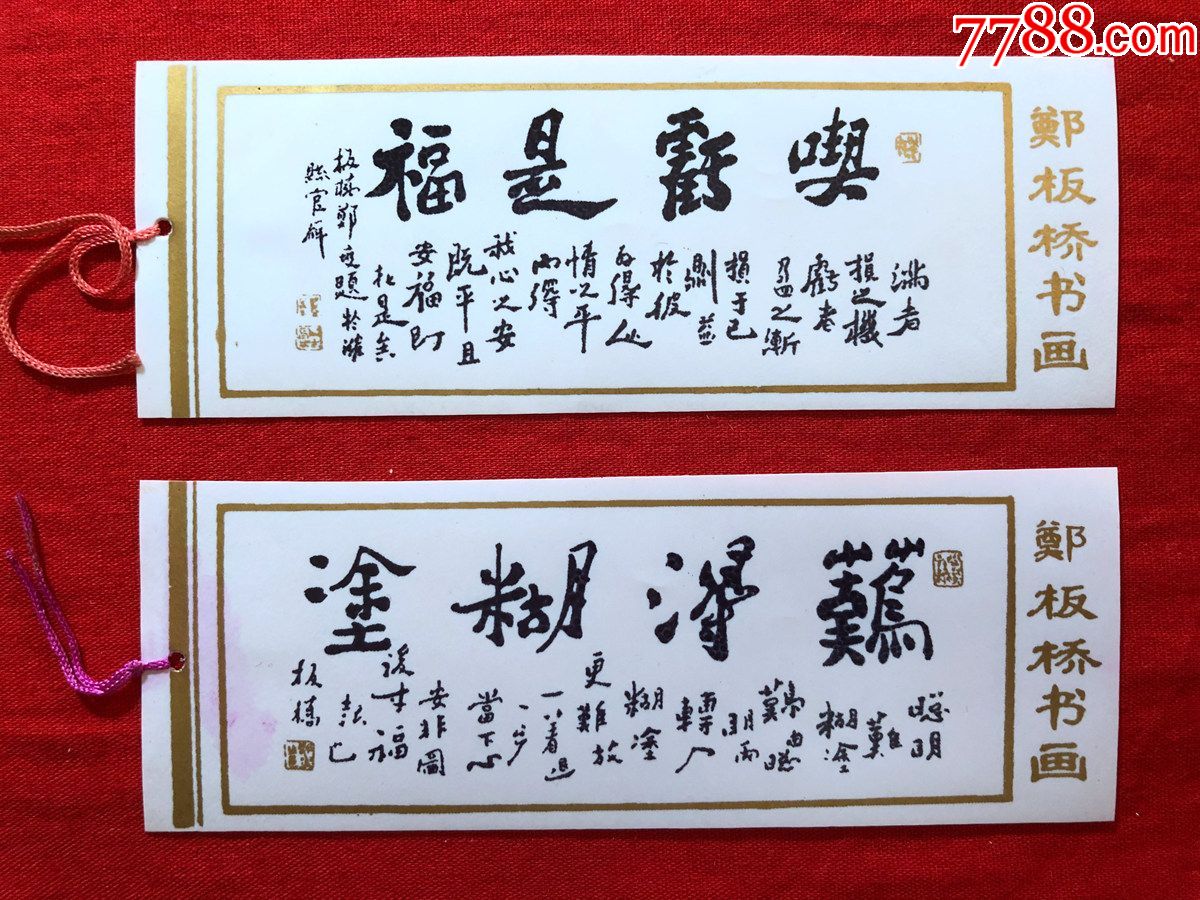 7788.com
鄭板桥书画
喫虧是福
滿者
損之機
虧者
盈之漸
損于己
則益
於彼
外得人
情之平
內得
我心之安
既平且
安福即
在是矣
板橋鄭燮題於濰
縣官廨
鄭板桥书画
難得糊塗
聰明
難
糊塗
難由聰
明而
轉入
糊塗
更難放
一着退
一步
當下心
安非圖
後來福
報也
板橋